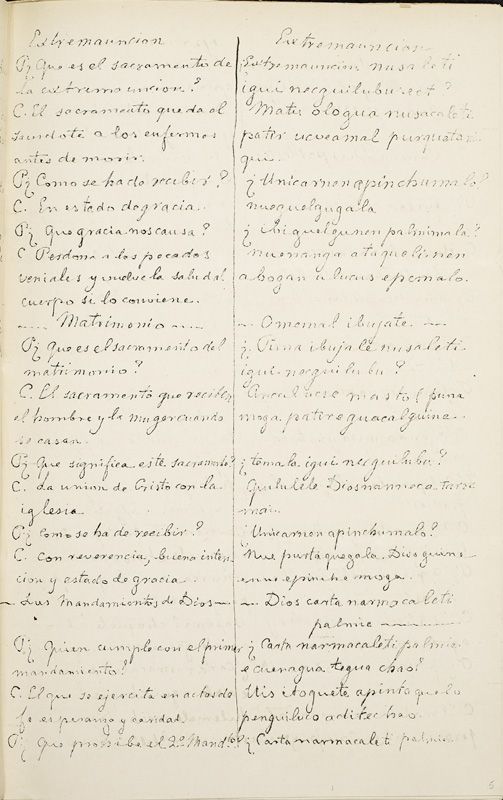 Extremauncion
P¿ Que es el sacramento de
la extremauncion?
C. El sacramento que da el
sacerdote a los enfermos
antes de morir.
P¿ Como se ha de recibir?
C. En estado de gracia.
P¿ Que gracia nos causa?
C Perdona a los pecados
veniales y vuelve la salud al
cuerpo si lo conviene.
Matrimonio
P¿ Que es el sacramento del
matimonio?
C. El sacramento que reciben
el hombre y la muger cuando
se casan.
P¿ Que significa este sacramento?
C. La union de Cristo con la
iglesia
P¿ Como se ha de recibir?
C. con reverencia, buena inten
cion y estado de gracia.
Los Mandamientos de Dios
P¿ Quien cumple con el primer
mandamiento?
C. El que se ejercita en actos de
fe esperanza y caridad.
P¿ Que prohibe el 2º Mandto?
Extremauncion
Extremauncion nusaleti
igui necquilubu
Matu ologua nusacaleti
patir ucueamal purquatani
que.
¿Unicarnon apinchumalo?
nuequelgugala
palmimala?
nuenanga atuquelinen
abogan ulucus epemalo.
Omemal ibujate.
¿ Puna ibujale nusaleti
igui necquilubu?
masto puna
moga patire guacalguine.
¿ igui necquilubu?
Diosnanneca
mai.
¿Unicarnon apinchumalo?
Nue purtaquegala Dios
moga.
Dios carta narmacaleti
palmie
¿ Carta narmacaleti palmie
tegua chao?
Uis itoquete apinto
penguiluco aditechao.
¿ Carta narmacaleti palmie
5